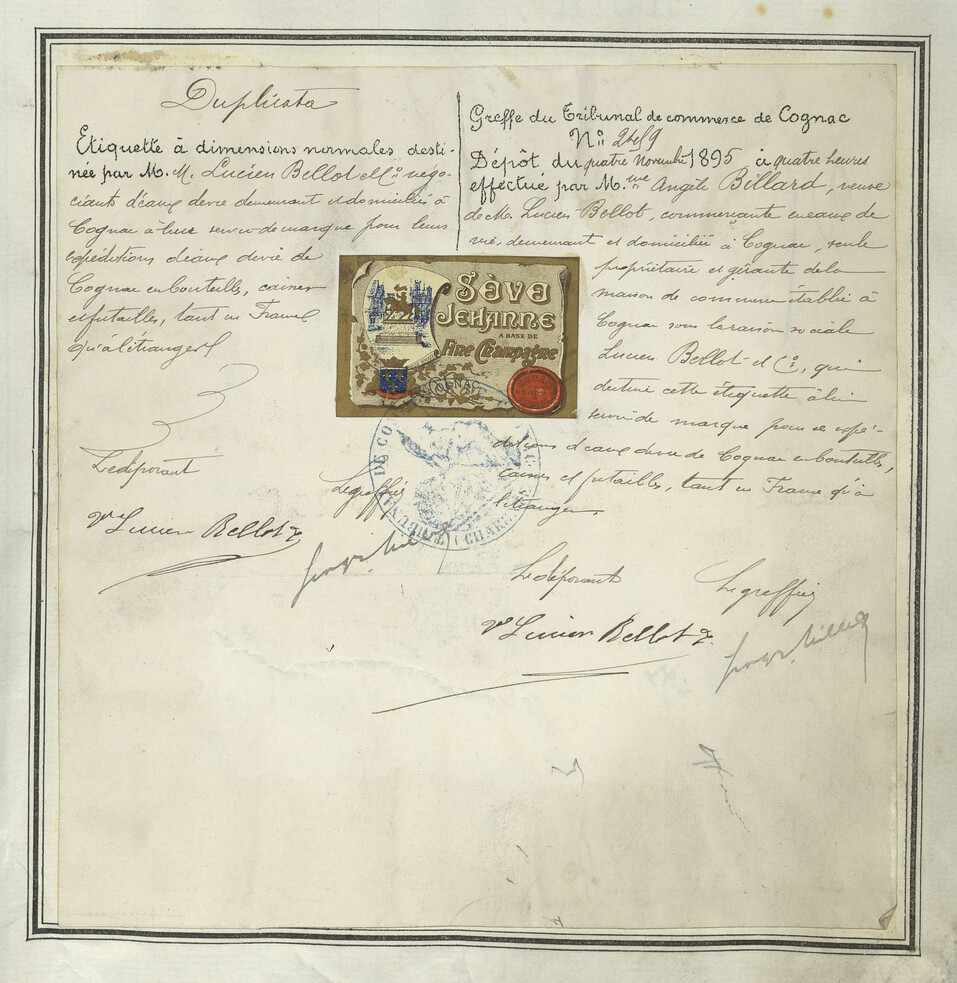 Duplicata
Etiquette à dimensions normales desti-
née par M. M. Lucien Bellot & Cie négo-
ciants d'eaux de vie demeurant et domiciliés à
Cognac à leur servir de marque pour leurs
expéditions d'eaux de vie de
Cognac en bouteilles, caisses
et futailles, tant en France
qu'à l'étranger
Le déposant
Le greffier
Ve Lucien Bellot
Greffe du Tribunal de commerce de Cognac
No 2459
Dépôt du quatre Novembre 1895 à quatre heures
effectué par M.me Angèle Billard, veuve
de M. Lucien Bellot, commerçante en eaux de
vie, demeurant et domiciliée à Cognac, seule
propriétaire et gérante de la
maison de commerce établie à
Cognac sous la raison sociale
Lucien Bellot et Cie, qui
destine cette étiquette à lui
servir de marque pour ses expé-
ditions d'eaux de vie de Cognac en bouteilles,
caisses et futailles, tant en France qu'à
l'étranger.
Le déposant
Le greffier
Ve Lucien Bellot
Sève
JEHANNE
A BASE DE
Fine Champagne
COGNAC